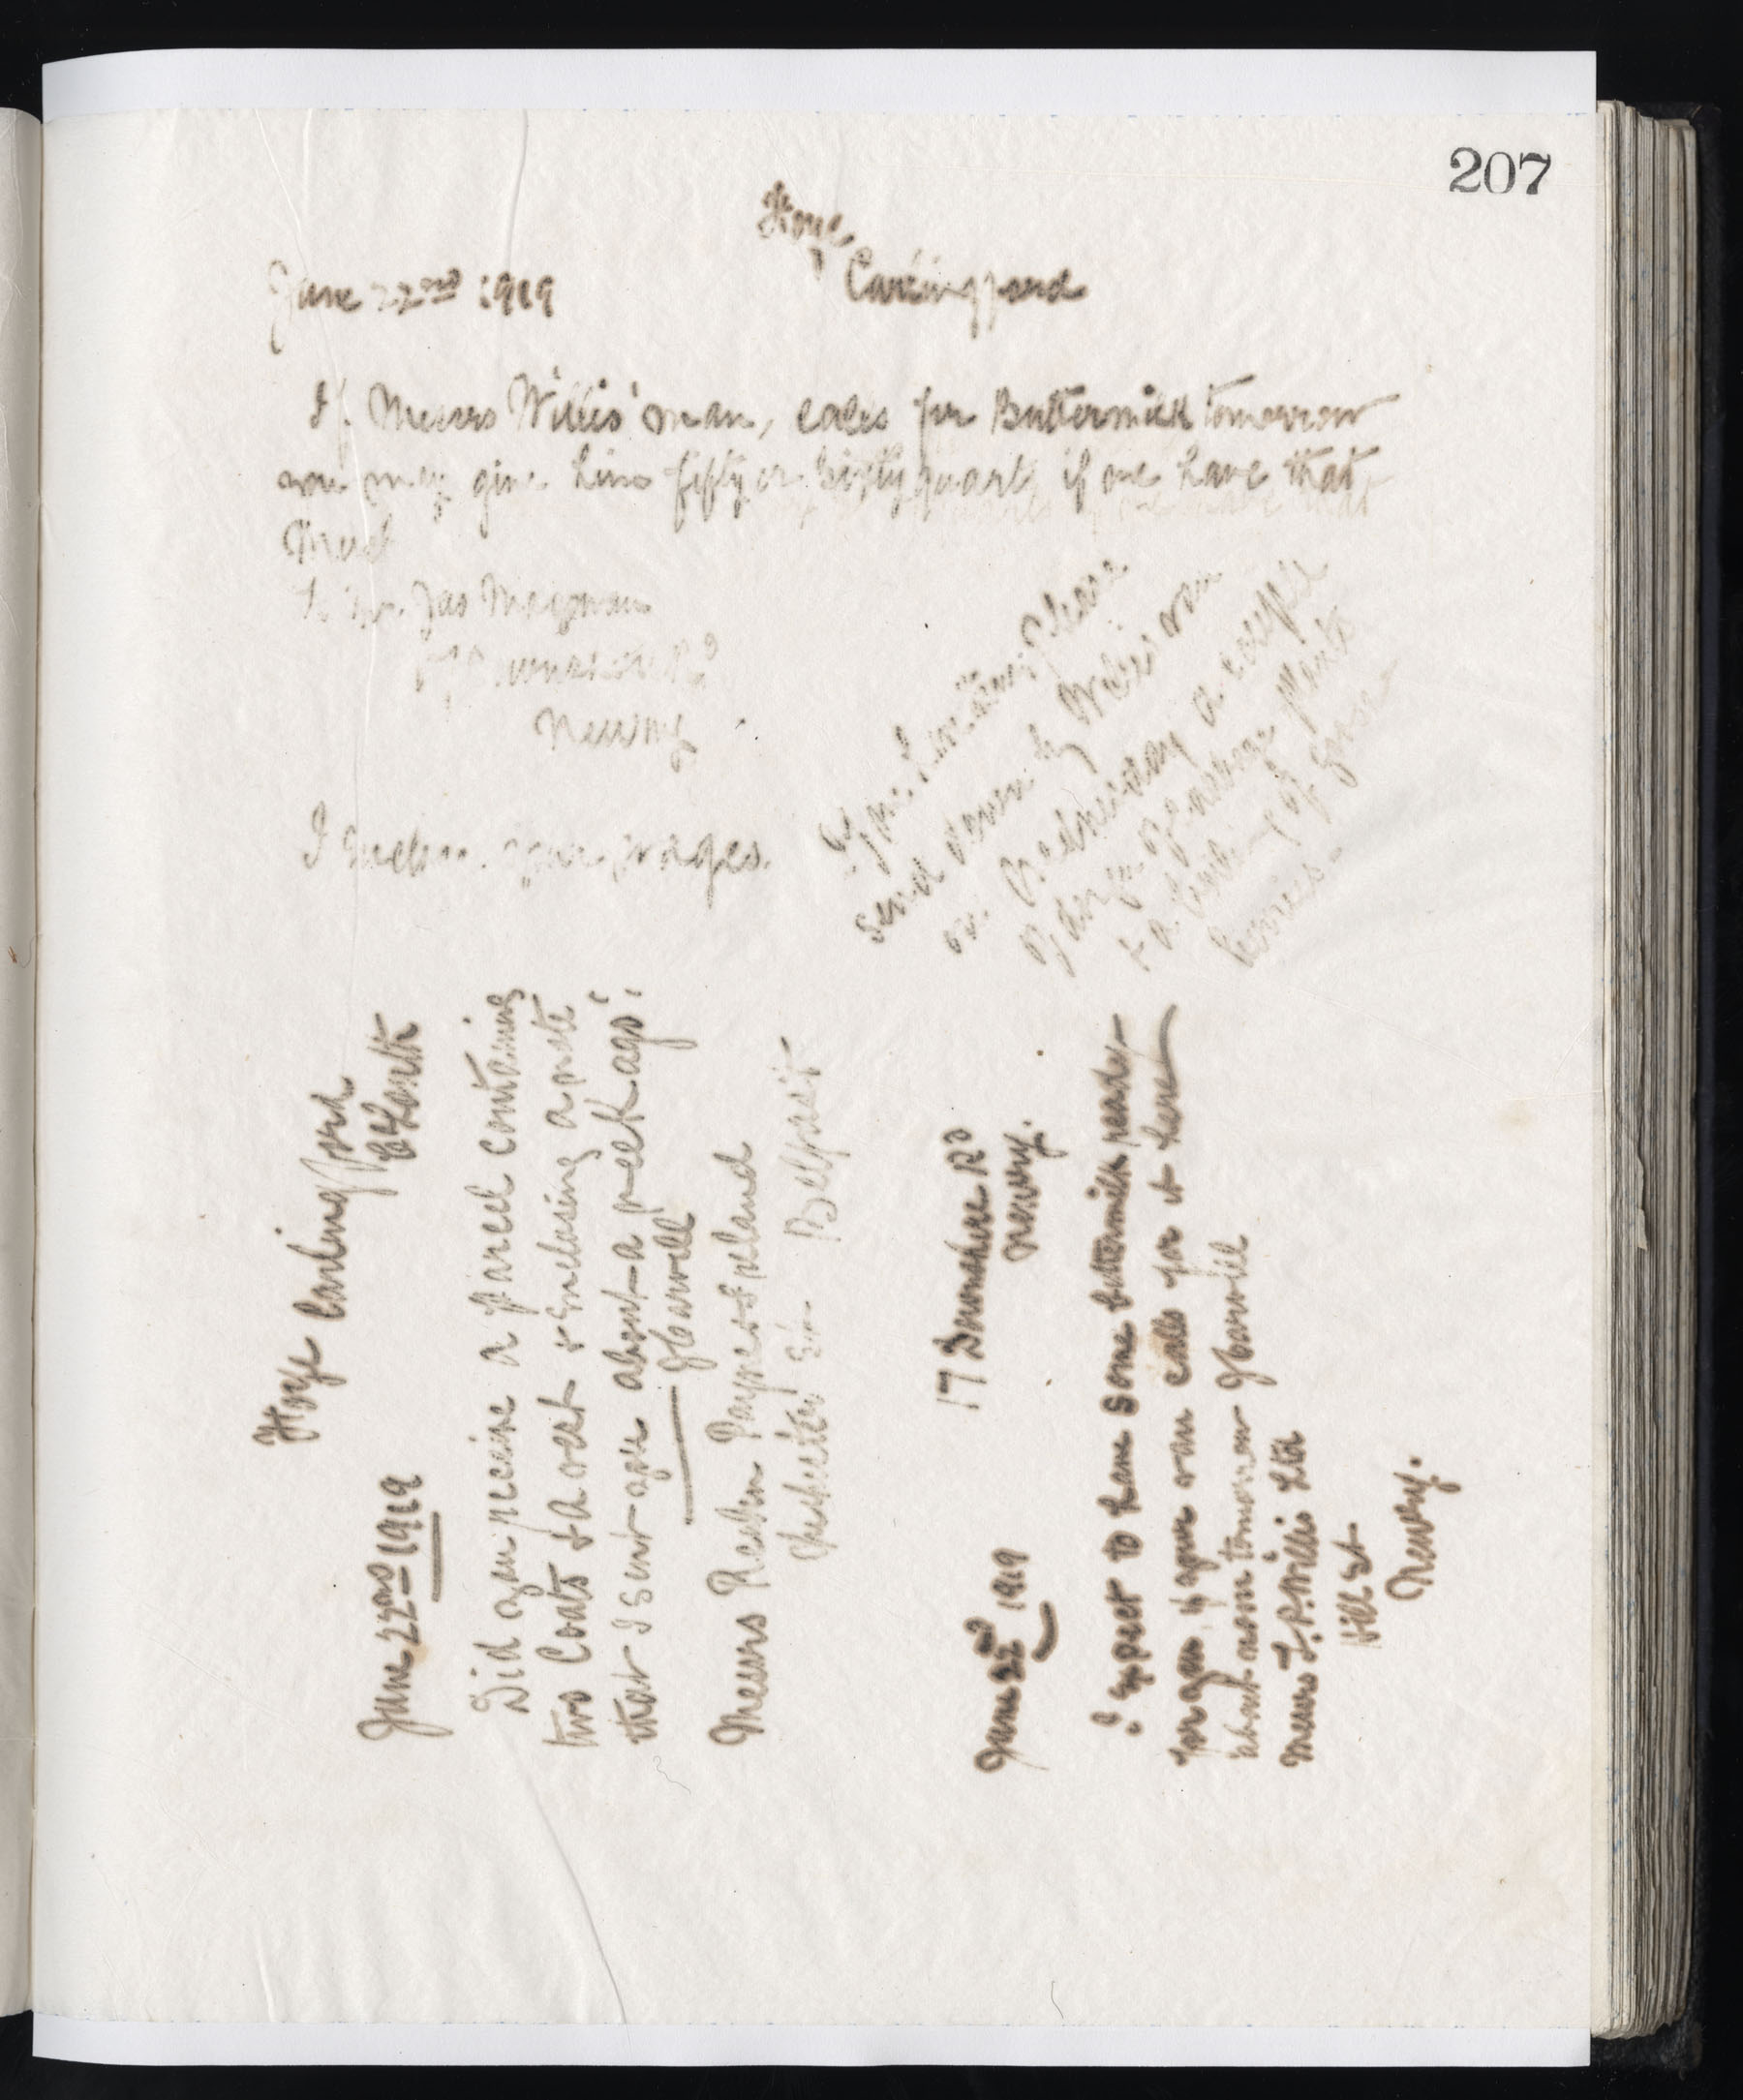 207
Carlingford
June 22nd 1919
If Messrs Willis' man, calls for Buttermilk tomorrow
you may give him fifty or sixty quarts if we have that
much
To Mr. Jas
Newry
I enclose your wages.
If you have time please
send down by Willis van
on Wednesday a couple
of dozen of cabbage plants
& a little of goose-
berries-
Carlingford
Co Louth
June 22nd 1919
Did you receive a parcel containing
two Coats & a vest & enclosing a note
that I sent you about a week ago?
Messrs
Chichester St. Belfast
17 Downshire Rd
Newry.
June 22nd 1919
I expect to have some buttermilk ready
for you, if your van calls for it here
about noon tomorrow
Messrs T. P. Willis Ltd
Hill St.
Newry.